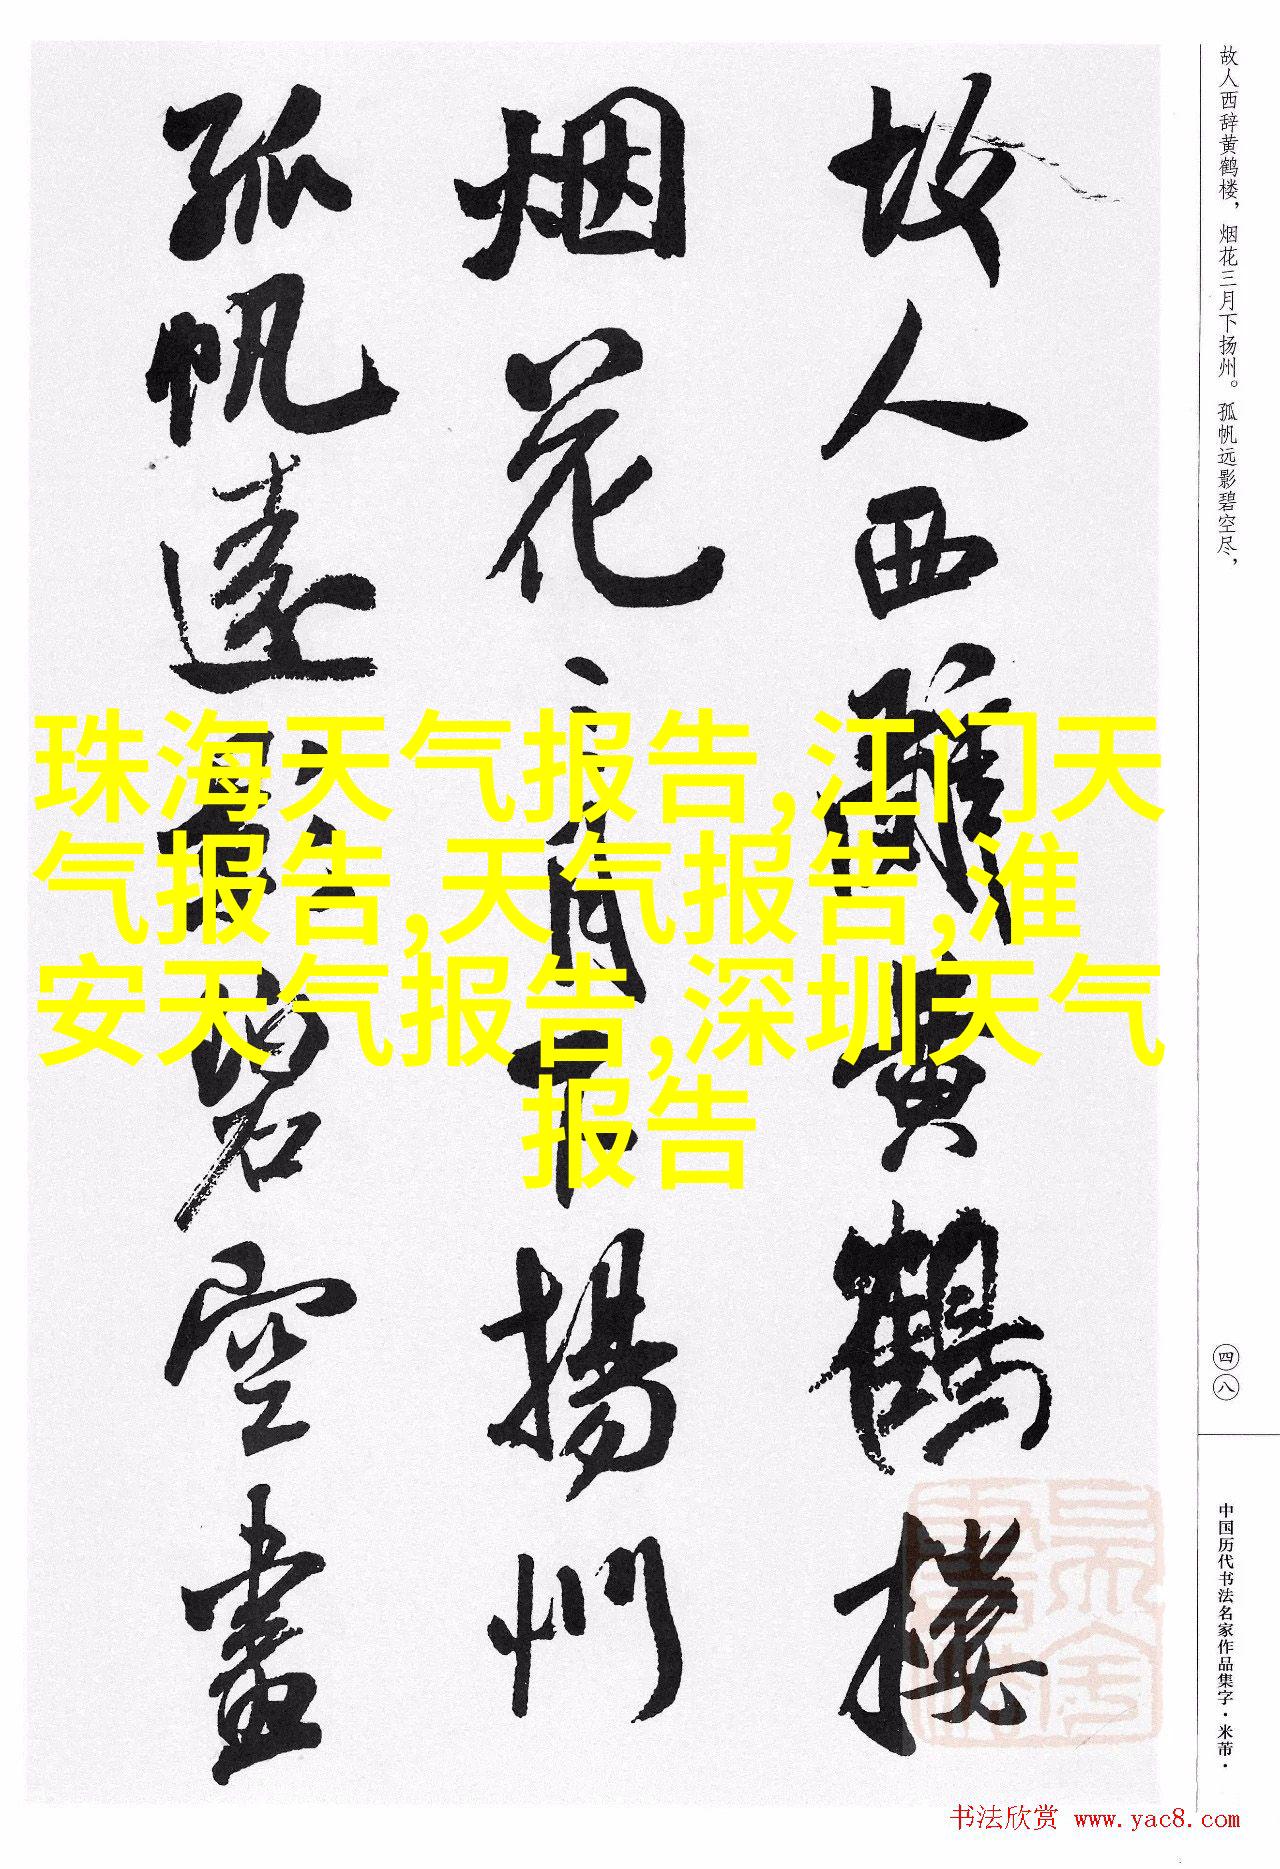 故人西辞黄鹤楼，烟花三月下扬州。孤帆远影碧空尽，
故人西辭黄鶴樓
烟花三月下揚州
孤帆遠影碧空盡
珠海天气报告,江门天
气报告,天气报告,淮
安天气报告,深圳天气
报告
四八
中国历代书法名家作品集字·米芾·
书法欣赏 www.yac8.com